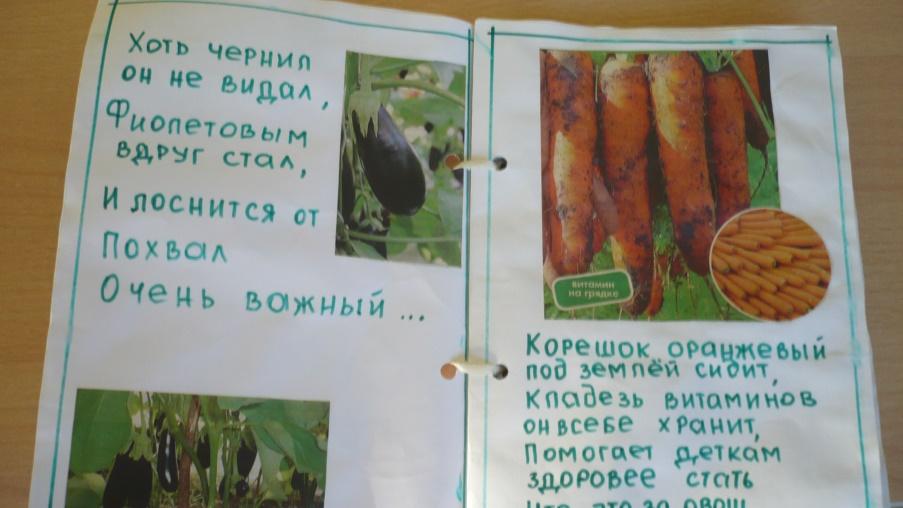 Хоть чернил
он не видал,
Фиолетовым
вдруг стал,
И лоснится от
Похвал
Очень важный ...
витамин
на грядке
Корешок оранжевый
под землёй сидит,
Кладезь витаминов
он всебе хранит,
Помогает деткам
здоровее стать
Что это за овощ